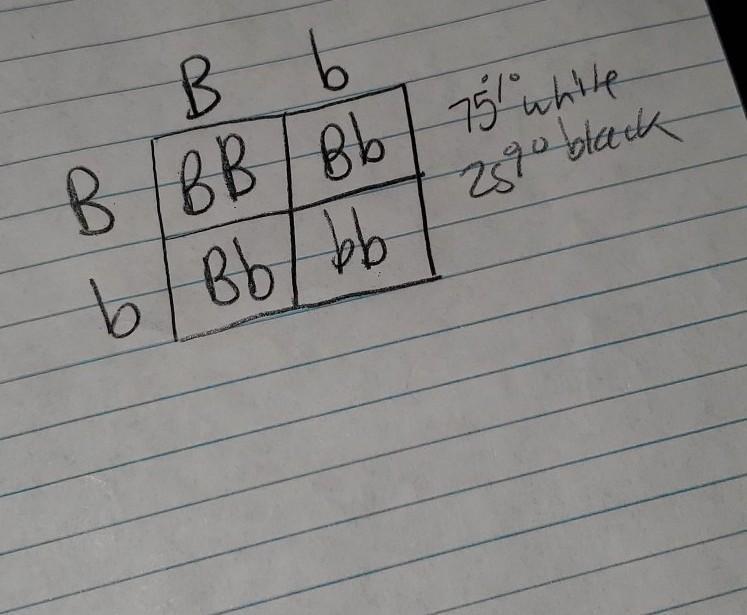 B b
B BB Bb 75% white
25% black
b Bb bb